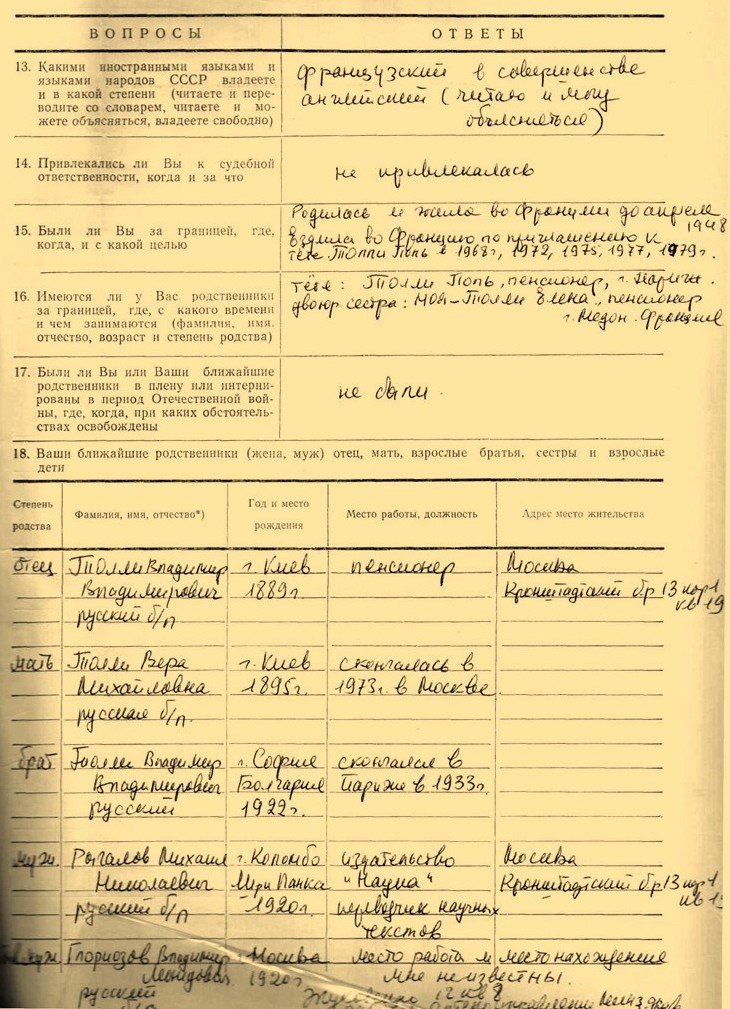 ВОПРОСЫ ОТВЕТЫ
13. Какими иностранными языками и
языками народов СССР владеете
и в какой степени (читаете и пере-
водите со словарем, читаете и мо-
жете объясняться, владеете свободно)
французский в совершенстве
английский (читаю и могу
объясняться)
14. Привлекались ли Вы к судебной
ответственности, когда и за что
не привлекалась
15. Были ли Вы за границей, где,
когда, и с какой целью
Родилась и жила во Франции до апреля
1948
Ездила во Францию по приглашению к
тёте Толли Попь в 1968г, 1972, 1975, 1977, 1979г.
16. Имеются ли у Вас родственники
за границей, где, с какого времени
и чем занимаются (фамилия, имя,
отчество, возраст и степень родства)
тётя: Толли Попь, пенсионер, г. Париж.
двоюр. сестра: Толли Елена, пенсионер
г. Медон. Франция
17. Были ли Вы или Ваши ближайшие
родственники в плену или интерни-
рованы в период Отечественной вой-
ны, где, когда, при каких обстоятель-
ствах освобождены
не были.
18. Ваши ближайшие родственники (жена, муж) отец, мать, взрослые братья, сестры и взрослые
дети
Степень
родства
Фамилия, имя, отчество*)
Год и место
рождения
Место работы, должность
Адрес место жительства
отец Толли Владимир г. Киев пенсионер Москва
Владимирович 1889г. Кронштадтский бр 13 кор 1
русский б/п кв 19
мать Толли Вера г. Киев скончалась в
Михайловна 1895г. 1973г. в Москве
русская б/п.
брат Толли Владимир г. София скончался в
Владимирович Болгария Париже в 1933г.
русский 1922г.
муж. Рыгалов Михаил г. Коломбо издательство Москва
Николаевич Шри Ланка "Наука" Кронштадтский бр 13 кор 1
русский б/п 1920г. переводчик научных кв 19
текстов
муж. Глориозов Владимир Москва место работы и место нахождение
1920г мне неизвестны.
русский